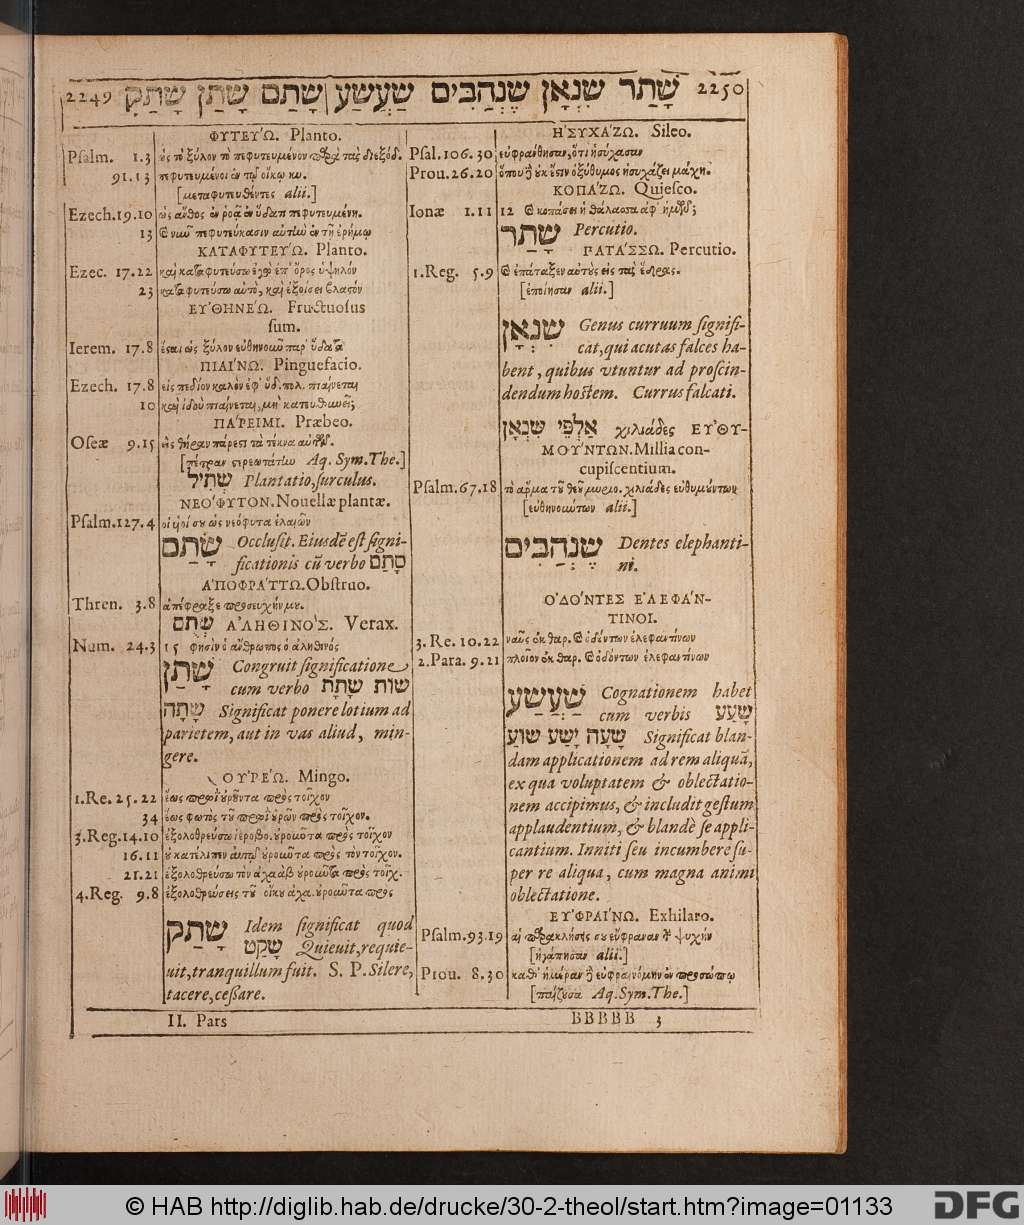 2249 שָׁתַר שִׁנְאָן שֶׁנְהַבִּים שִׁעֲשַׁע שָׁתַם שָׁתַן שָׁתַק 2250
ΦΥΤΕΥ´Ω. Planto.
Psalm. 1.3 ὡς τὸ ξύλον τὸ πεφυτευμένον παρὰ τὰς διεξόδ.
91.13 πεφυτευμένοι ἐν τῷ οἴκῳ κυ.
[μεταφυτευθέντες alii.]
Ezech.19.10 ὡς ἄνθος ἐν ῥοᾷ ἐν ὕδατι πεφυτευμένη.
13 καὶ νῦν πεφύτευκασιν αὐτὴν ἐν τῇ ἐρήμῳ
ΚΑΤΑΦΥΤΕΥ´Ω. Planto.
Ezec. 17.22 καὶ καταφυτεύσω ἐγὼ ἐπ' ὄρος ὑψηλόν
23 καταφυτεύσω αὐτὸ, καὶ ἐξοίσει βλαστόν
ΕΥ᾿ΘΗΝΕ´Ω. Fructuosus
sum.
Ierem. 17.8 ἔσται ὡς ξύλον εὐθηνοῦν παρ' ὕδατα
ΠΙΑΙ´ΝΩ. Pinguefacio.
Ezech. 17.8 εἰς πεδίον καλὸν ἐφ' ὕδ. πολ. πιαίνεται
10 καὶ ἰδοὺ πιαίνεται, μὴ κατευθυνεῖ;
ΠΑ´ΡΕΙΜΙ. Præbeo.
Oseæ 9.15 εἰς θήραν πάρεστι τὰ τέκνα αὐτῶν.
[πέτραν στερεωτάτην Aq. Sym. The.]
שְׁתִיל Plantatio, surculus.
ΝΕΟ´ΦΥΤΟΝ. Nouellæ plantæ.
Psalm.127.4 οἱ υἱοί σου ὡς νεόφυτα ἐλαιῶν
שָׂתַם Occlusit. Eiusdē est signi-
ficationis cū verbo סָתַם
Α᾿ΠΟΦΡΑ´ΤΤΩ. Obstruo.
Thren. 3.8 ἀπέφραξε προσευχήν μου.
שְׁתֻם Α᾿ΛΗΘΙΝΟ´Σ. Verax.
Num. 24.3 15 φησὶν ὁ ἄνθρωπος ὁ ἀληθινός
שָׁתַן Congruit significatione
cum verbo שׁוּת שָׁתַת
שָׁתָה Significat ponere lotium ad
parietem, aut in vas aliud, min-
gere.
ΟΥ᾿ΡΕ´Ω. Mingo.
1.Re. 25.22 ἕως πρωῒ οὐροῦντα πρὸς τοῖχον
34 ἕως φωτὸς τοῦ πρωῒ οὐρῶν πρὸς τοῖχον.
3.Reg.14.10 ἐξολοθρεύσω ἱεροβο. οὐροῦντα πρὸς τοῖχον
16.11 οὐ κατέλιπεν αὐτῷ οὐροῦντα πρὸς τὸν τοῖχον.
21.21 ἐξολοθρεύσω τὸν ἀχαὰβ οὐροῦντα πρὸς τοῖχ.
4.Reg. 9.8 ἐξολοθρεύσεις τοῦ οἴκου ἀχα. οὐροῦντα πρὸς
שָׁתַק Idem significat quod
שָׁקַט Quieuit, requie-
uit, tranquillum fuit. S. P. Silere,
tacere, cessare.
II. Pars
Η῾ΣΥΧΑ´ΖΩ. Sileo.
Psal.106.30 εὐφράνθησαν, ὅτι ἡσύχασαν
Prou.26.20 ὅπου δὲ οὐκ ἔστιν ὀξύθυμος ἡσυχάζει μάχη.
ΚΟΠΑ´ΖΩ. Quiesco.
Ionæ 1.11 12 καὶ κοπάσει ἡ θάλασσα ἀφ' ἡμῶν;
שָׁתַר Percutio.
ΠΑΤΑ´ΣΣΩ. Percutio.
1.Reg. 5.9 καὶ ἐπάταξεν αὐτοὺς εἰς τὰς ἕδρας.
[ἐποίησαν alii.]
שִׁנְאָן Genus curruum signifi-
cat, qui acutas falces ha-
bent, quibus vtuntur ad proscin-
dendum hostem. Currus falcati.
אַלְפֵי שִׁנְאָן χιλιάδες ΕΥ᾿ΘΥ-
ΜΟΥ´ΝΤΩΝ. Millia con-
cupiscentium.
Psalm.67.18 τὸ ἅρμα τοῦ θεοῦ μυριο. χιλιάδες εὐθυμούντων
[εὐθηνούντων alii.]
שֶׁנְהַבִּים Dentes elephanti-
ni.
Ο᾿ΔΟ´ΝΤΕΣ Ε᾿ΛΕΦΑ´Ν-
ΤΙΝΟΙ.
3. Re. 10.22 ναῦς ἐκ θαρ. καὶ ὀδόντων ἐλεφαντίνων
2.Para. 9.21 πλοῖον ἐκ θαρ. καὶ ὀδόντων ἐλεφαντίνων
שַׁעֲשַׁע Cognationem habet
cum verbis שָׁעַע
שָׁעָה יָשַׁע שׁוּעַ Significat blan-
dam applicationem ad rem aliquā,
ex qua voluptatem & oblectatio-
nem accipimus, & includit gestum
applaudentium, & blandè se appli-
cantium. Inniti seu incumbere su-
per re aliqua, cum magna animi
oblectatione.
ΕΥ᾿ΦΡΑΙ´ΝΩ. Exhilaro.
Psalm.93.19 αἱ παρακλήσεις σου εὔφραναν τ ψυχήν
[ἠγάπησαν alii.]
Prou. 8.30 καθ' ἡμέραν δὲ εὐφραινόμην ἐν προσώπῳ
[παίζουσα Aq. Sym. The.]
BBBBB 3
© HAB http://diglib.hab.de/drucke/30-2-theol/start.htm?image=01133
DFG